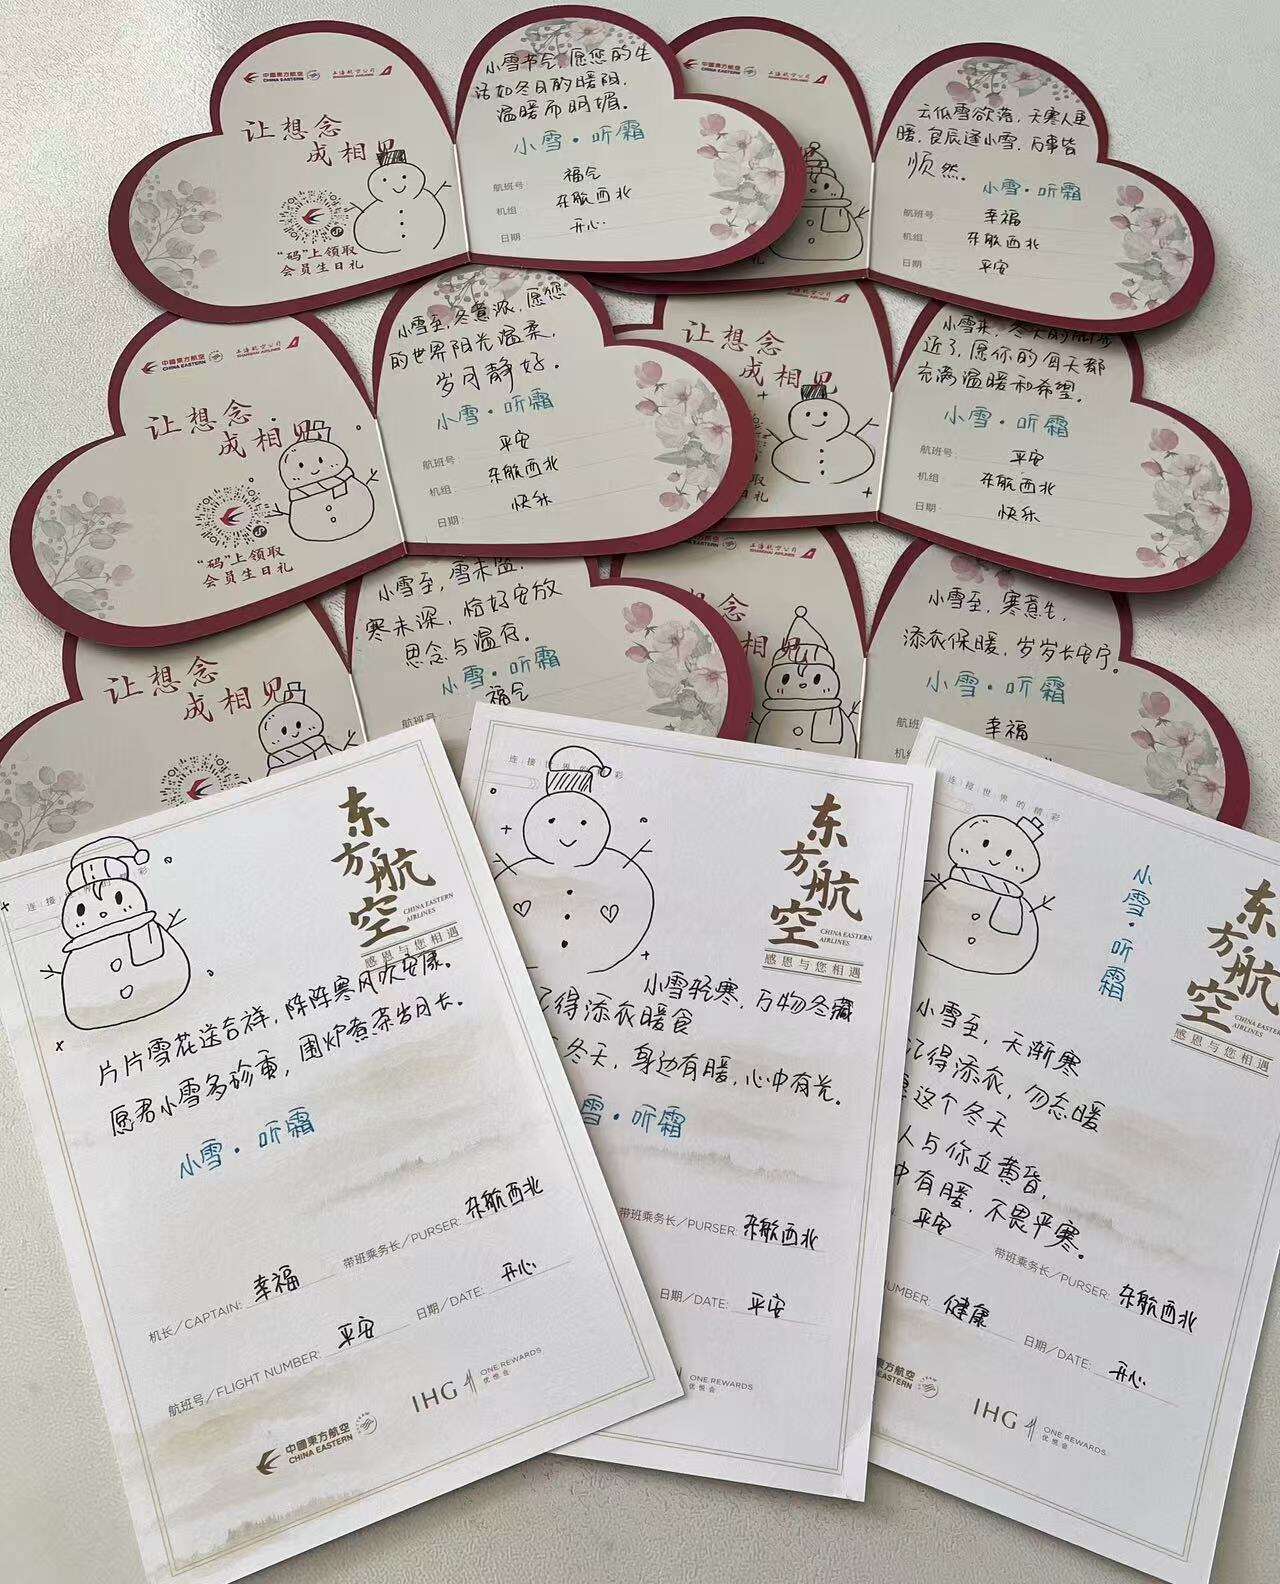 中國東方航空
CHINA EASTERN
上海航空公司
SHANGHAI AIRLINES
让想念
成相见
“码”上领取
会员生日礼
小雪节气,愿您的生
活如冬日的暖阳,
温暖而明媚。
小雪·听霜
航班号 福气
机组 东航西北
日期 开心
云低雪欲落,天寒人重
暖,良辰逢小雪,万事皆
顺然。
小雪·听霜
航班号 幸福
机组 东航西北
日期 平安
中國東方航空
CHINA EASTERN
上海航空公司
SHANGHAI AIRLINES
让想念
成相见
“码”上领取
会员生日礼
小雪至,冬意浓,愿您
的世界阳光温柔,
岁月静好。
小雪·听霜
航班号 平安
机组 东航西北
日期: 快乐
上海航空公司
让想念
成相见
领取
日礼
小雪来,冬天的脚步
近了,愿你的每天都
充满温暖和希望。
小雪·听霜
航班号: 平安
机组 东航西北
日期: 快乐
让想念
成相见
小雪至,雪未盈,
寒未深,恰好安放
思念与温存。
小雪·听霜
航班号 福气
CHINA EASTERN
上海航空公司
小雪至,寒意生,
添衣保暖,岁岁长安宁。
小雪·听霜
航班号 幸福
机组
日期:
东方航空
CHINA EASTERN
AIRLINES
感恩与您相遇
片片雪花送吉祥,阵阵寒风吹安康。
愿君小雪多珍重,围炉煮茶岁月长。
小雪·听霜
带班乘务长/PURSER: 东航西北
机长/CAPTAIN: 幸福
日期/DATE: 开心
航班号/FLIGHT NUMBER: 平安
IHG ONE REWARDS
优悦会
中國東方航空
CHINA EASTERN
东方航空
CHINA EASTERN
AIRLINES
感恩与您相遇
小雪轻寒,万物冬藏
记得添衣暖食
冬天,身边有暖,心中有光。
雪·听霜
带班乘务长/PURSER: 东航西北
日期/DATE: 平安
ONE REWARDS
优悦会
连接世界的精彩
东方航空
CHINA EASTERN
AIRLINES
感恩与您相遇
小雪·听霜
小雪至,天渐寒
记得添衣,勿忘暖
这个冬天
人与你立黄昏,
中有暖,不畏平寒。
平安
带班乘务长/PURSER: 东航西北
NUMBER: 健康
日期/DATE: 开心
東方航空
EASTERN
IHG ONE REWARDS
优悦会